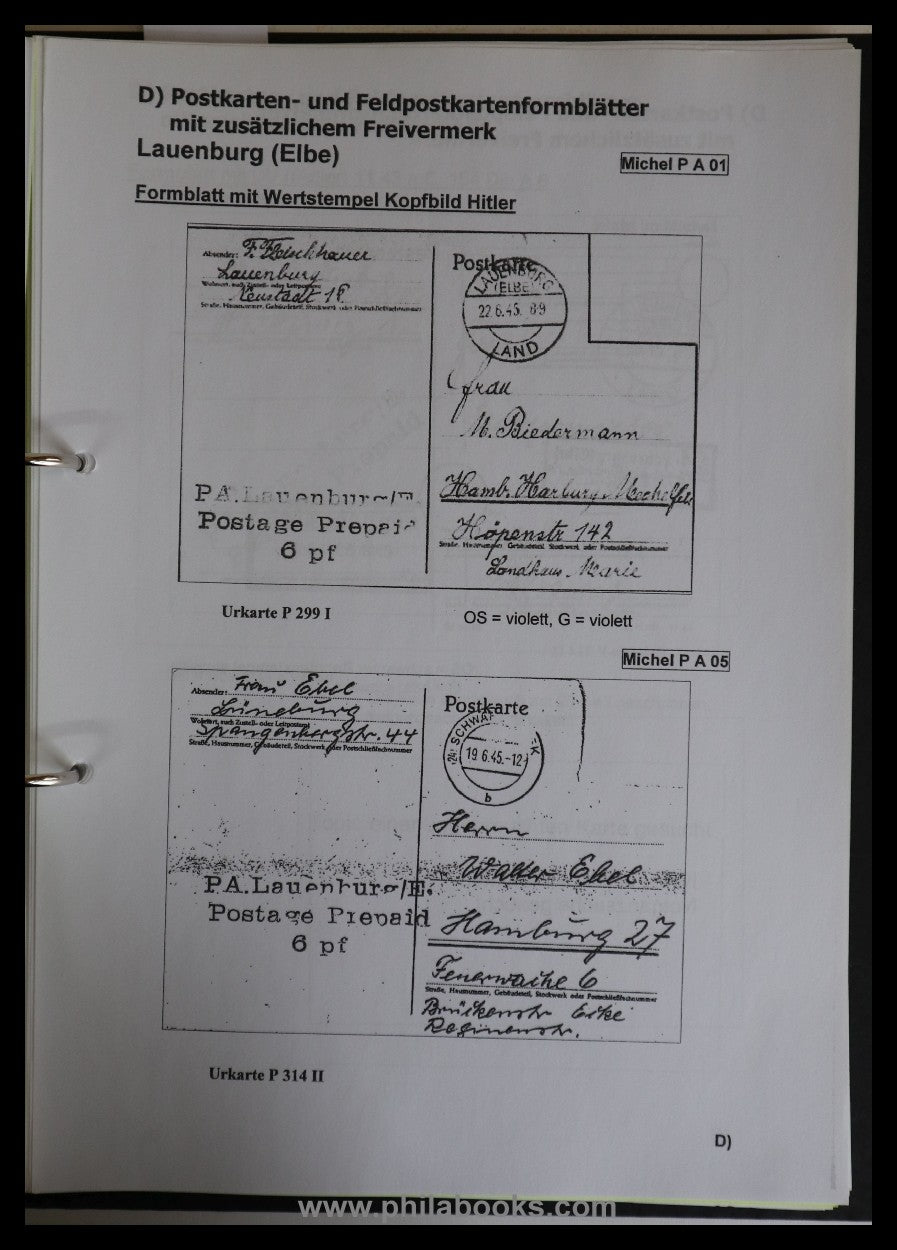 D) Postkarten- und Feldpostkartenformblätter
mit zusätzlichem Freivermerk
Lauenburg (Elbe)
Michel P A 01
Formblatt mit Wertstempel Kopfbild Hitler
Absender: F. Fleischhauer
Lauenburg
Wohnort, auch Zustell- oder Leitpostamt
Neustadt 18
Straße, Hausnummer, Gebäudeteil, Stockwerk oder Postschließfachnummer
Postkarte
LAUENBURG
(ELBE)
22.6.45. 8-9
LAND
Frau
M. Biedermann
Hamb. Harburg.
Höpenstr 142
Straße, Hausnummer, Gebäudeteil, Stockwerk oder Postschließfachnummer
Landhaus Marie
P A. Lauenburg/E.
Postage Prepaid
6 pf
Urkarte P 299 I
OS = violett, G = violett
Michel P A 05
Absender: Frau Ebel
Lüneburg
Wohnort, auch Zustell- oder Leitpostamt
Spangenbergstr. 44
Straße, Hausnummer, Gebäudeteil, Stockwerk oder Postschließfachnummer
Postkarte
(24) SCHWAR EK
19.6.45.-12
b
Herrn
Walter Ebel
Hamburg 27
Feuerwache 6
Straße, Hausnummer, Gebäudeteil, Stockwerk oder Postschließfachnummer
Ecke
P A. Lauenburg/E.
Postage Prepaid
6 pf
Urkarte P 314 II
D)
www.philabooks.com